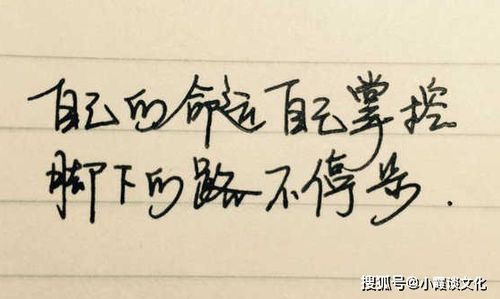 自己的命运自己掌控
脚下的路不停步.
搜狐号@小霞谈文化